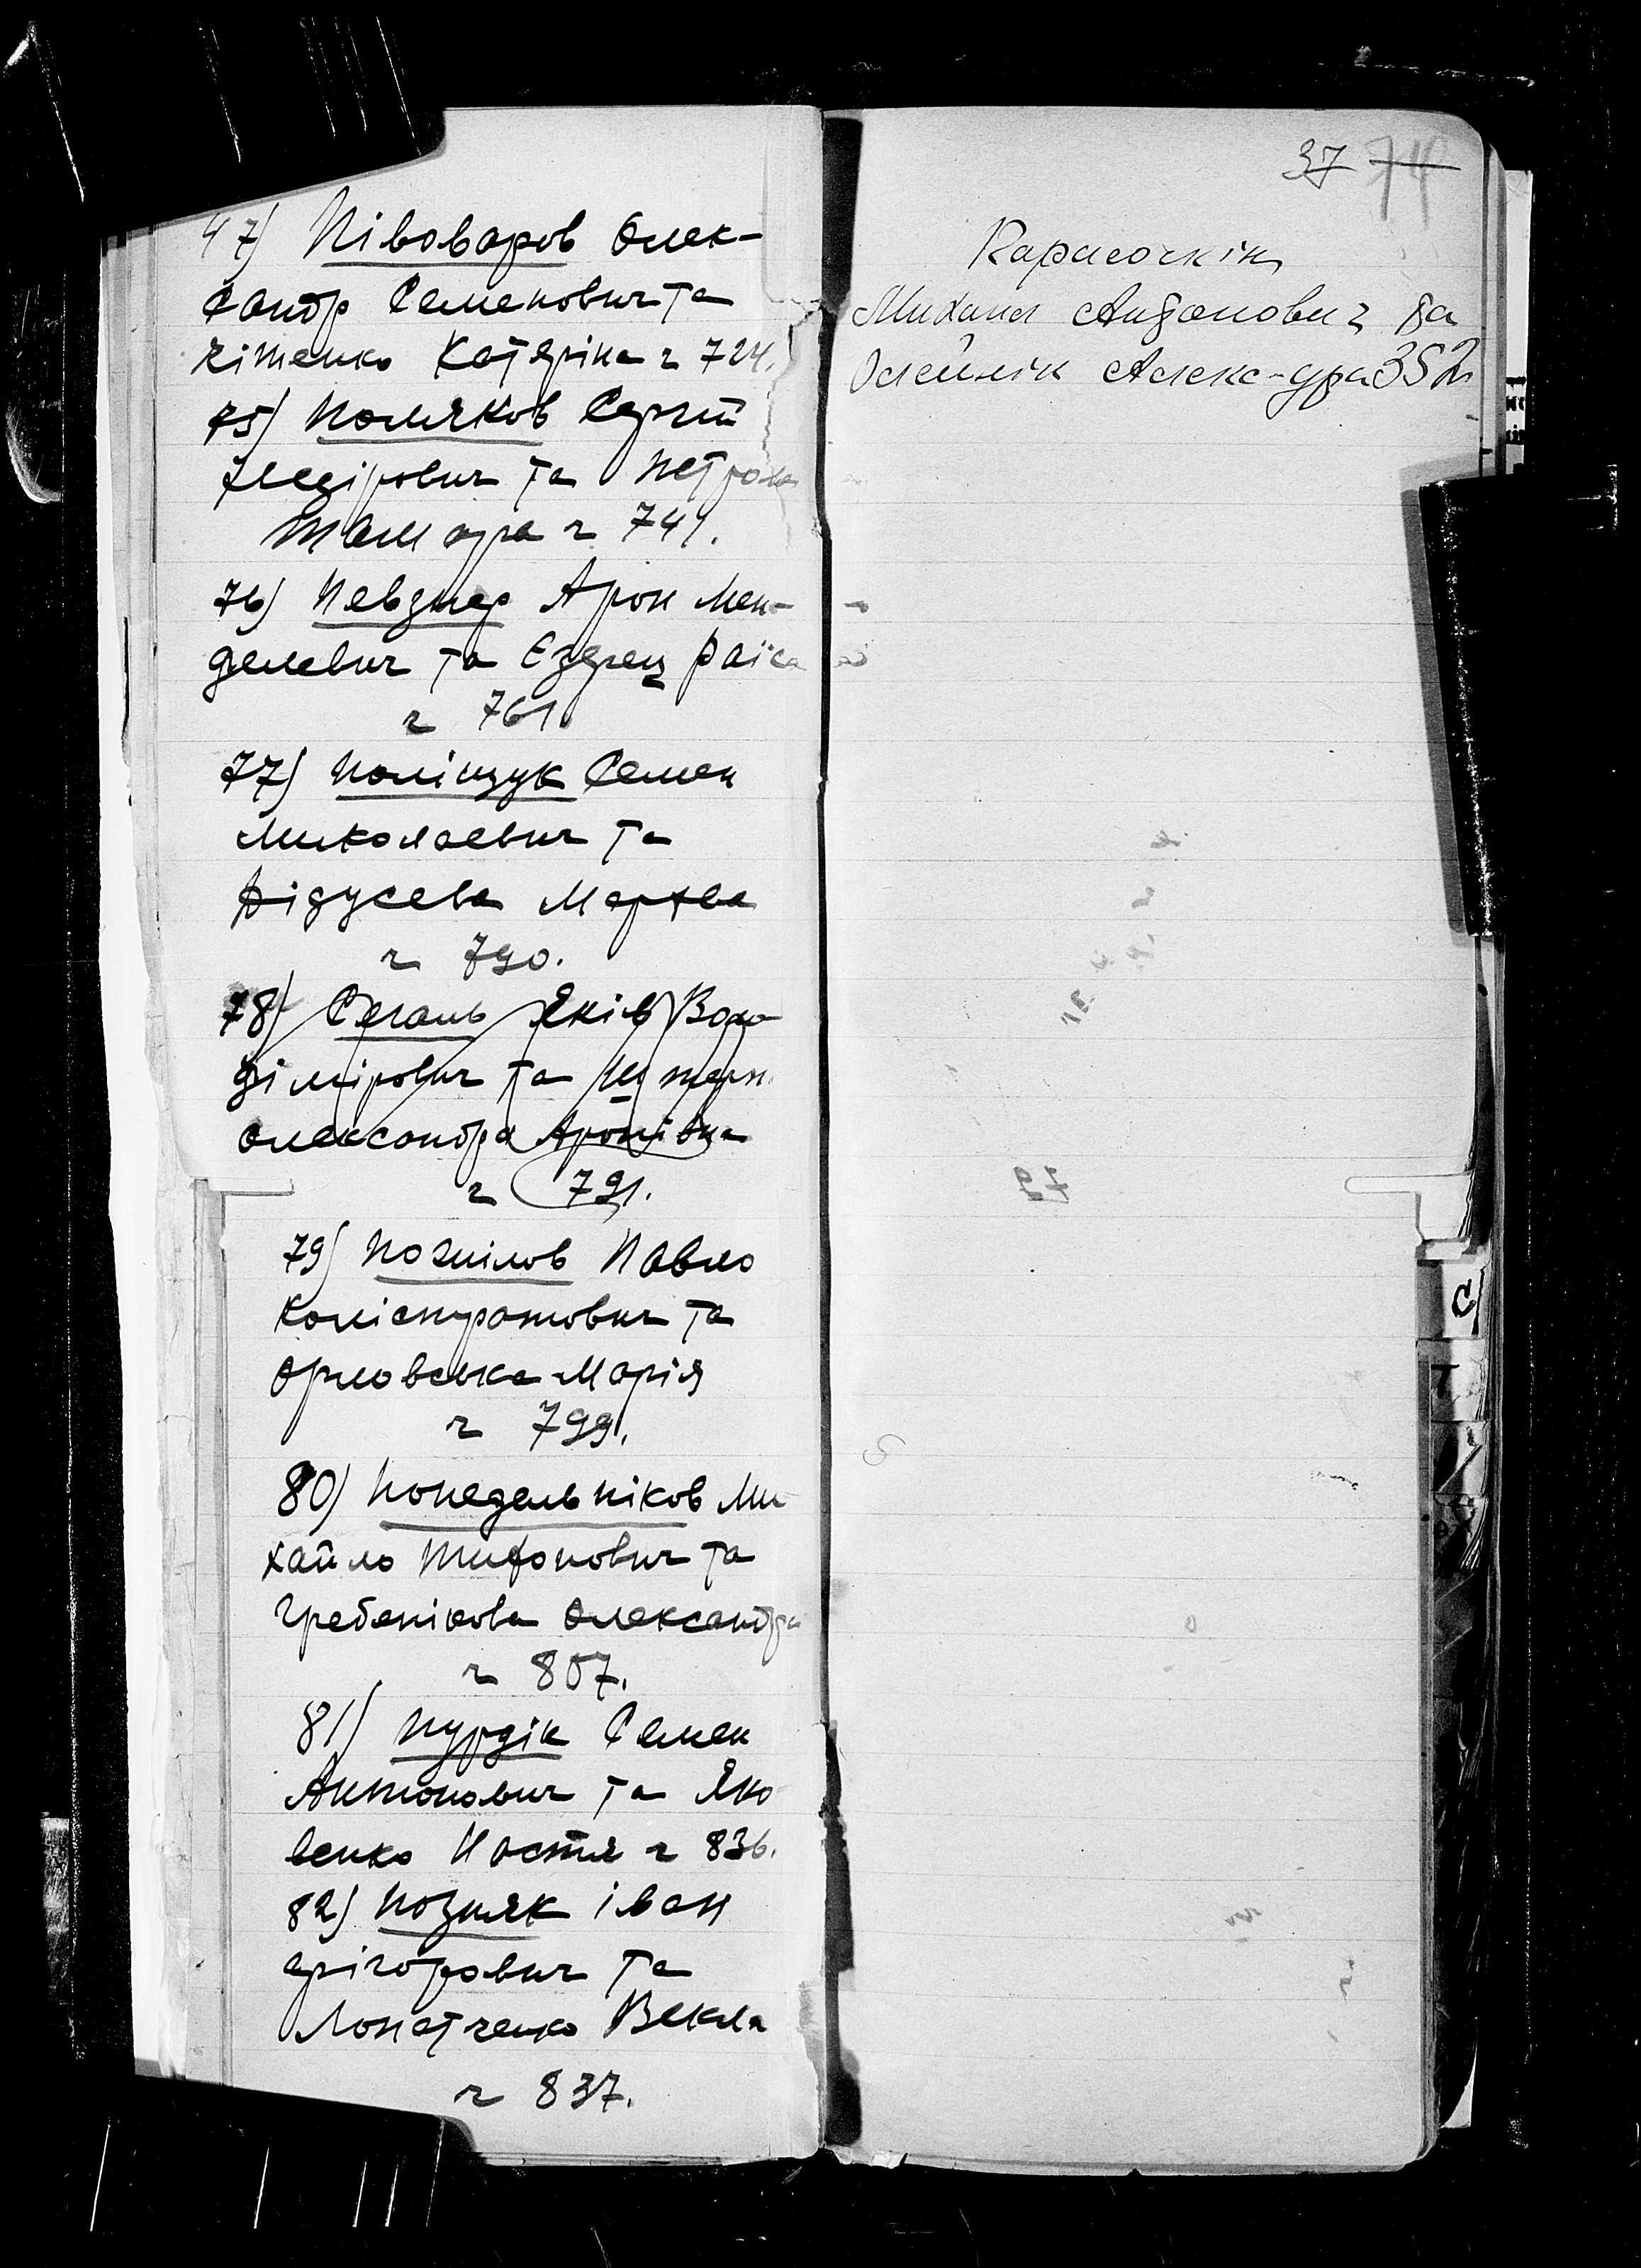 47) Півоваров Олек-
сандр Семенович та
Кітенко Катеріна ч 724.
75) Поляков Сергій
та Петрова
Тамара ч 741.
76) Певзнер Арон Мен-
делевич та Езерец Раїса
ч 761
77) Поліщук Семен
Миколаевич та
Дідусева Марфа
ч 790.
78) Сегаль Яків Воло
дімірович та Штерн
Олександра Аронівна
ч 791.
79) Похилов Павло
Калістратович та
Орловська Марія
ч 799.
80) Понедельніков Ми
хайло Тихонович та
Гребенікова Олександра
ч 807.
81) Пурдік Семен
Антонович та Яко
венко Настя ч 836.
82) Позняк Іван
Грігорович та
Лопатченко Векла
ч 837.
37 74
Карасочкін
Михаил Андонович та
Олейнік Алекс-дра 352
С
Т